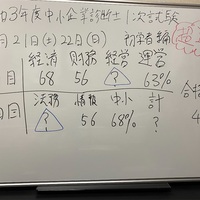 03年度中小企業診断士1次試験
月21日(土)22日(日) 初学者編
経済 財務 経営 運営
目 68 56 ? 63%
法務 情報 中小 計
目 ? 56 68% ?
合格
4